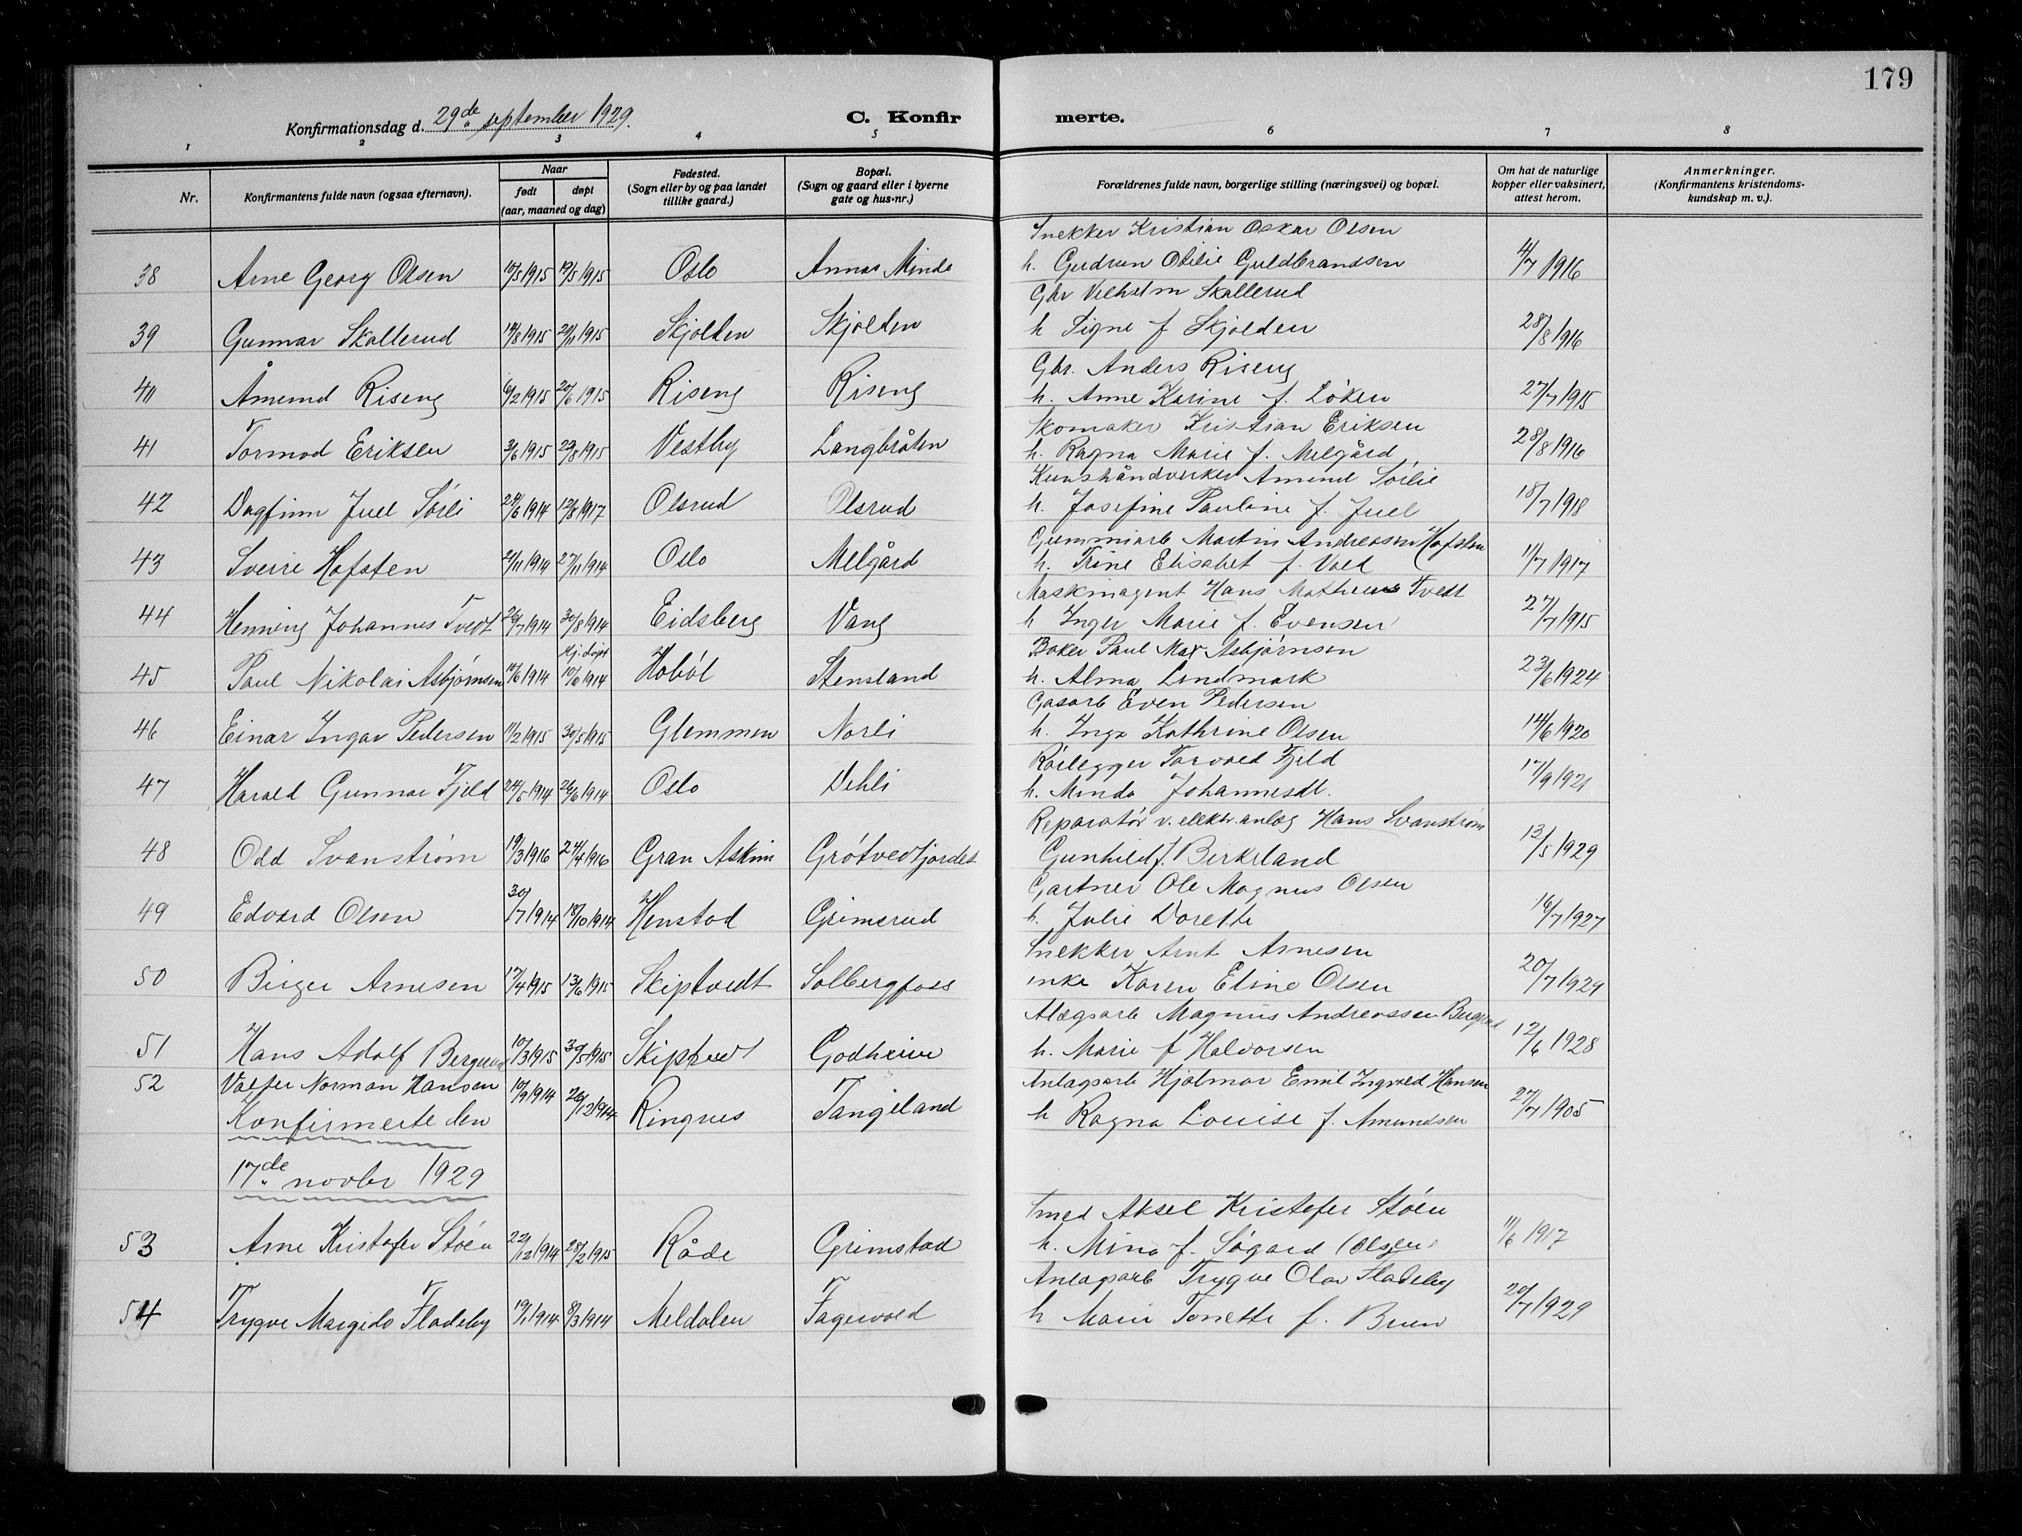 179
Konfirmationsdag d. 29de september 1929.
C. Konfirmerte.
1 2 3 4 5 6 7 8
Nr.
Konfirmantens fulde navn (ogsaa efternavn).
Naar
født
døpt
(aar, maaned og dag)
Fødested.
(Sogn eller by og paa landet
tillike gaard.)
Bopæl.
(Sogn og gaard eller i byerne
gate og hus-nr.)
Forældrenes fulde navn, borgerlige stilling (næringsvei) og bopæl.
Om hat de naturlige
kopper eller vaksinert,
attest herom.
Anmerkninger.
(Konfirmantens kristendoms-
kundskap m. v.).
Snekker Kristian Oskar Olsen
38 Arne Georg Olsen 1915 1915 Oslo Annas Minde h. Gudrun Otilie Guldbrandsen 4/7 1916
Gbr Vilhelm Skallerud
39 Gunnar Skallerud 1915 1915 Skjolden Skjolden h Signe f Skjolden 28/8 1916
Gbr. Anders Riseng
40 Åmund Riseng 6/2 1915 20/6 1915 Riseng Riseng h. Anne Karine f. Løken 27/7 1915
Skomaker Kristian Eriksen
41 Tormod Eriksen 3/6 1915 29/8 1915 Vestby Langbråten h. Ragna Marie f. Melgård 28/8 1916
Kunsthåndverker Amund Sørlie
42 Dagfinn Juel Sørli 1914 12/8 1917 Olsrud Olsrud h. Josefine Pauline f. Juel 18/7 1918
Gummiarb Martin Andreasen Hofsten
43 Sverre Hofsten 1914 27/11 1914 Oslo Melgård h. Trine Elisabet f. Vold 11/7 1917
Maskinagent Hans Matheus Tvedt
44 Henning Johannes Tvedt 26/7 1914 30/8 1914 Eidsberg Vang h Inger Marie f. Evensen 27/7 1915
Hj. døpt Baker Paul Max Asbjørnsen
45 Paul Nikolai Asbjørnsen 10/6 1914 10/6 1914 Hobøl Stensland h. Alma Lindmark 23/6 1924
Gasarb Even Pedersen
46 Einar Ingar Pedersen 11/2 1915 30/5 1915 Glemmen Norli h. Inga Kathrine Olsen 14/6 1920
Rørlegger Torvald Fjeld
47 Harald Gunnar Fjeld 24/5 1914 26/6 1914 Oslo Dehli h. Minda Johannesdt. 17/9 1921
Reparatør v. elektr. anlæg Hans Svanstrøm
48 Odd Svanstrøm 19/3 1916 24/4 1916 Gran Askim Grøtvedtjordet Gunhild f. Birkeland 13/5 1929
Gartner Ole Magnus Olsen
49 Edvard Olsen 30/7 1914 18/10 1914 Henstad Grimsrud h. Julie Dorette 16/7 1927
Snekker Arnt Arnesen
50 Birger Arnesen 17/4 1915 13/6 1915 Skiptvedt Solbergfoss enke Karen Eline Olsen 20/7 1929
Alægsarb Magnus Andreassen
51 Hans Adolf 10/3 1915 30/5 1915 Skiptvedt Godheim h. Marie f Halvorsen 12/6 1928
52 Valter Norman Hansen 10/9 1914 26/12 1914 Ringnes Tangeland Anlagsarb Hjalmar Emil Ingvald Hansen
h Ragna Louise f. Amundsen 27/7 1905
Konfirmerte den
17de novbr 1929
Smed Aksel Kristofer Støen
53 Arne Kristofer Støen 22/12 1914 28/2 1915 Råde Grimstad h. Mina f. Søgard (Olsen) 11/6 1917
Anlagsarb Trygve Olav Fladeby
54 Trygve Margido Fladeby 19/1 1914 8/3 1914 Meldalen Fagervold h Marie Tonette f. Bruu 20/7 1929